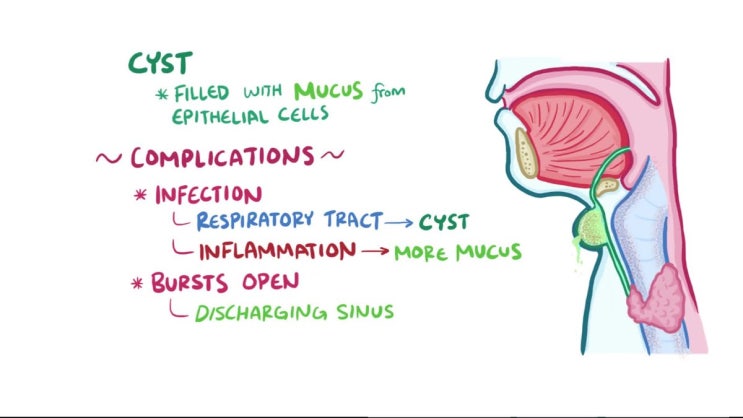 CYST
* FILLED WITH MUCUS from
EPITHELIAL CELLS
~ COMPLICATIONS ~
* INFECTION
RESPIRATORY TRACT → CYST
INFLAMMATION → MORE MUCUS
* BURSTS OPEN
DISCHARGING SINUS